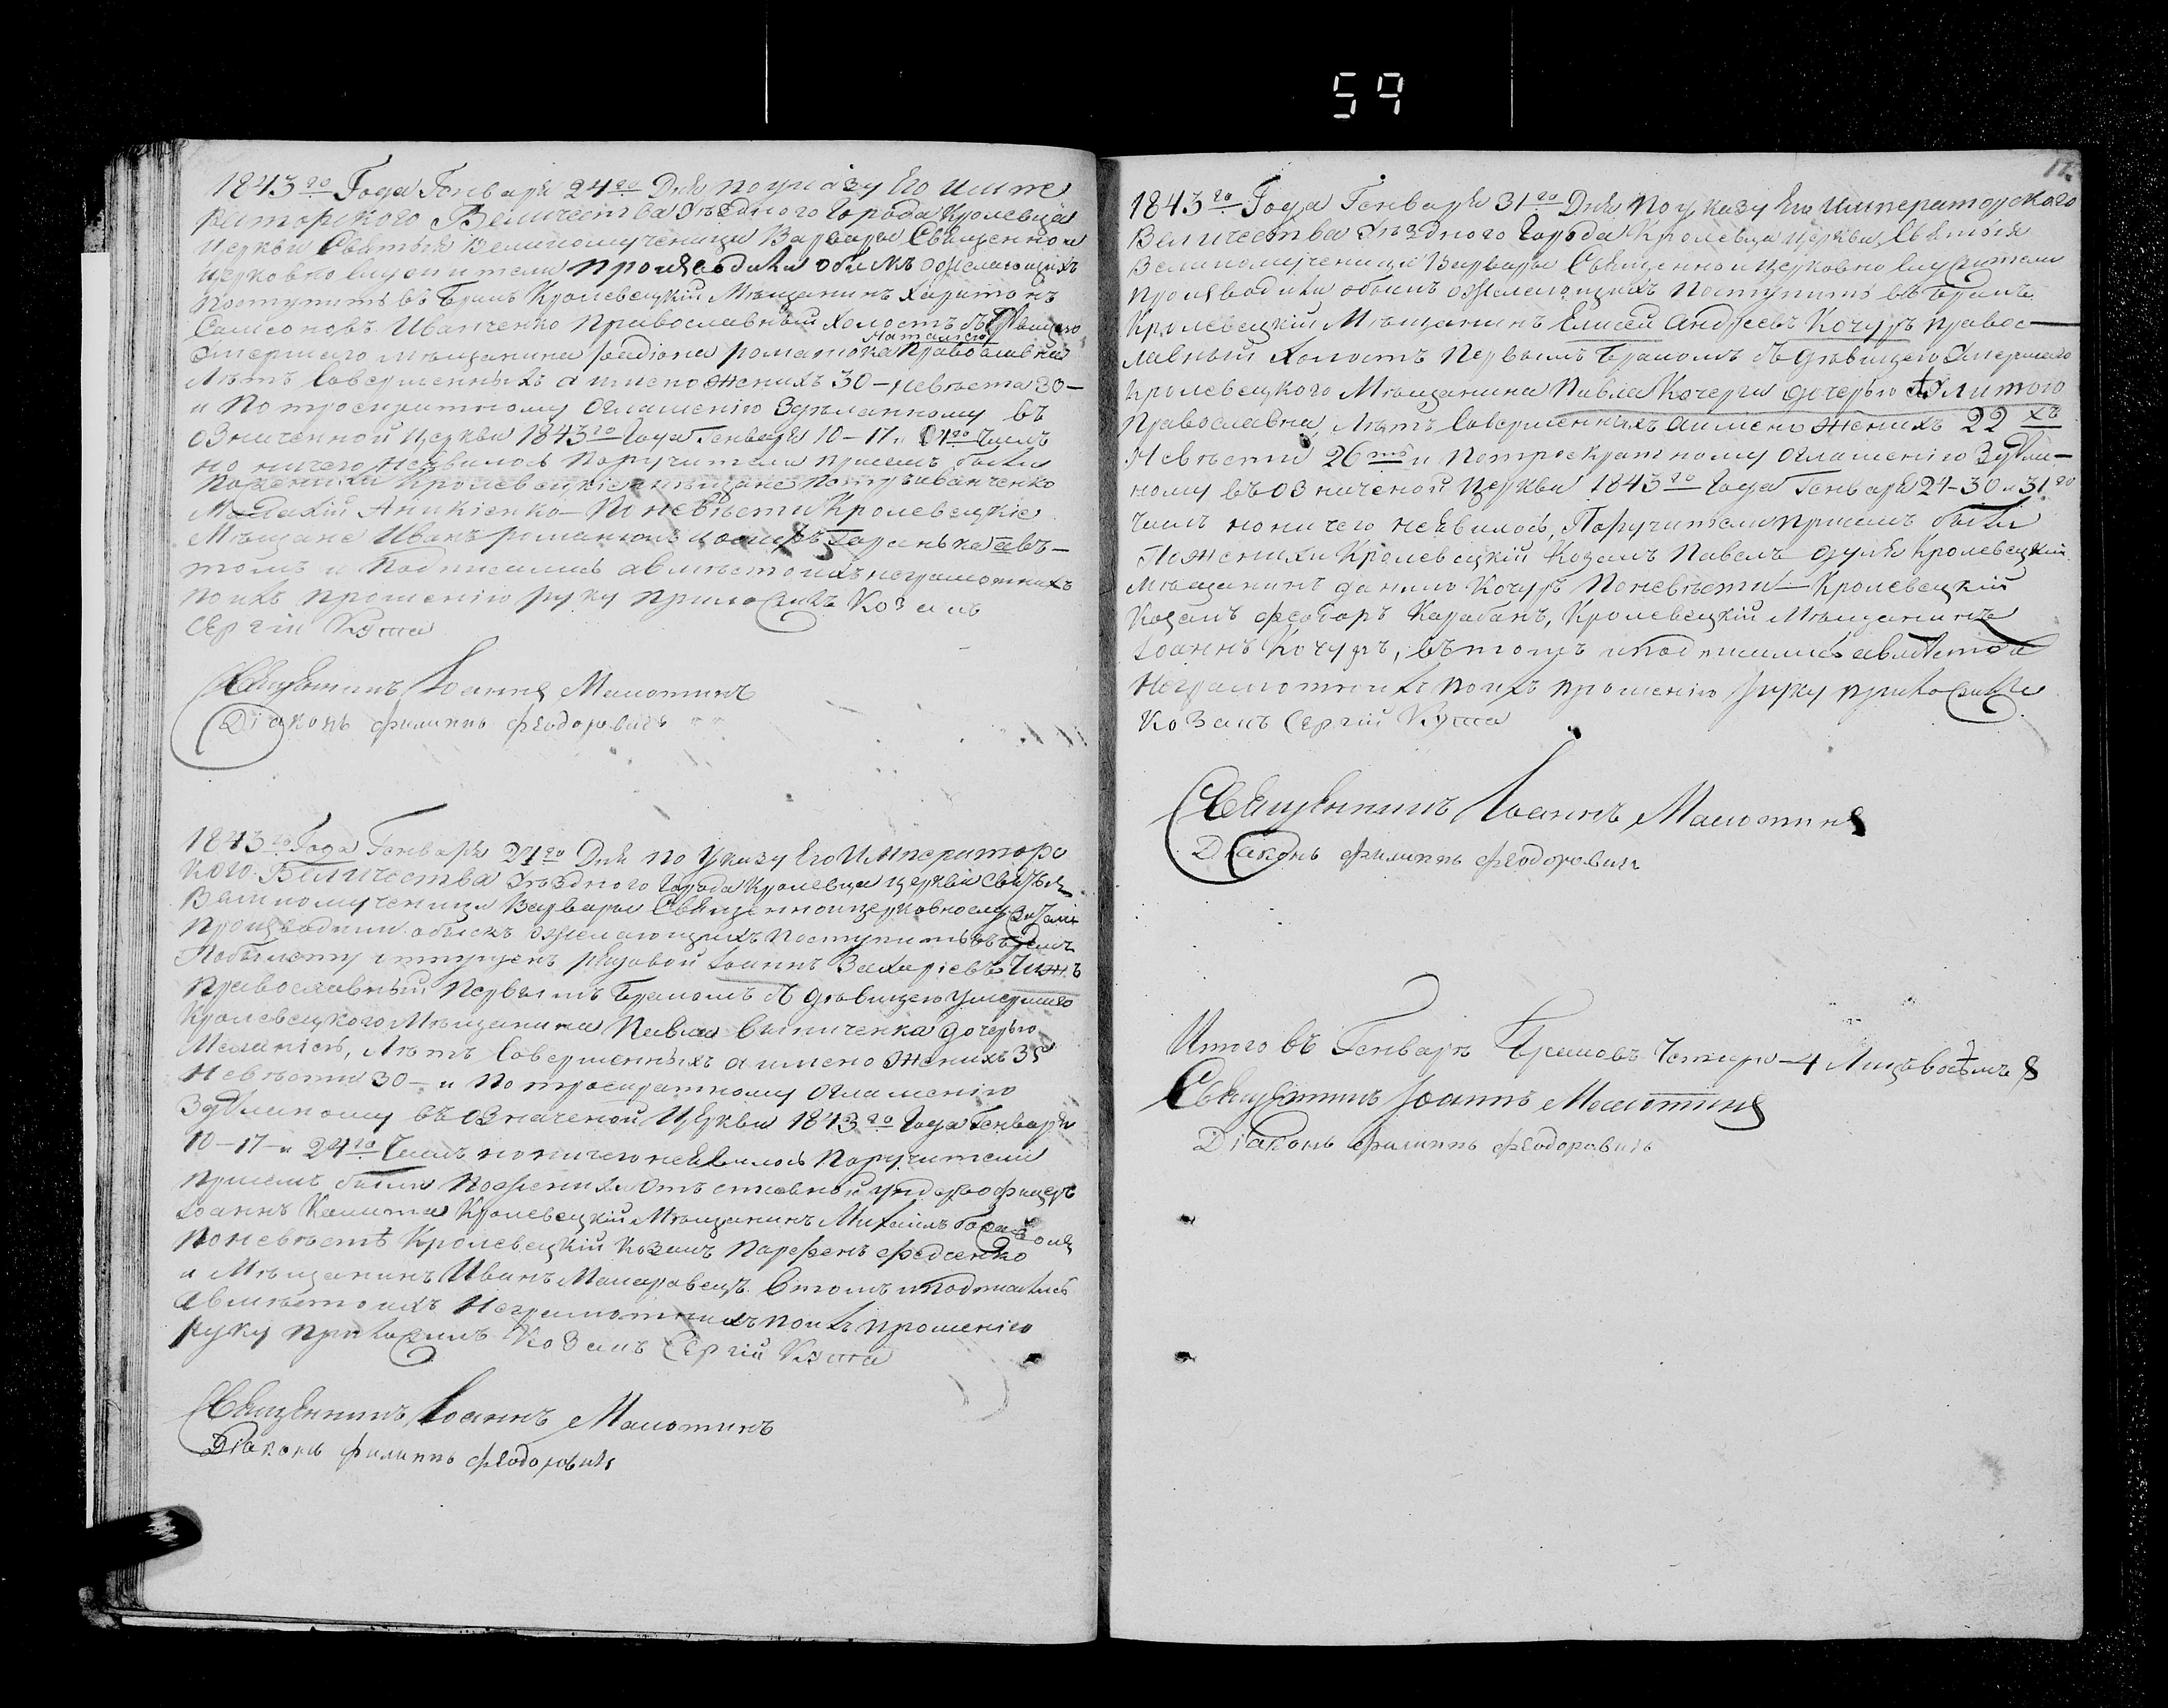 59
1843го Года Генваря 24го Дня по указу Его Импе
раторского Величества уѣздного Города Кролевца
Церкви Святыя Великомученицы Варвары Священно и
церковно служители производили обыскъ о желающихъ
поступить въ бракъ Кролевецкій Мѣщанинъ Харитонъ
Самсоновъ Иванченко Православный холостъ съ дѣвицею
Наталіею
умершаго мѣщанина Родіона Романюка Православна
Лѣтъ Совершенныхъ а имено Женихъ 30 – невѣста 30 –
и По троекратному Оглашенію Здѣланному въ
Означенной Церкви 1843го Года Генваря 10 – 17 и 24го Чиселъ
но ничего неявилось Поручители присемъ были
По женихи Кролевецкіе мѣщане Петръ Иванченко
Аникіенко – По невѣсти Кролевецкіе
Мѣщане Иванъ Романюкъ въ –
томъ и Подписались а вмѣсто ихъ неграмотнихъ
по ихъ прошенію руку приложилъ Козакъ
Сергій Куша
Священникъ Іоаннъ Малютинъ
Діаконъ Филиппъ Феодоровичъ
1843го Года Генваря 24го Дня по Указу Его Императорс
кого Величества уѣздного Города Кролевца церкви Святыя
Великомученицы Варвары Священно и церковнослужители
Производили обыскъ о желающихъ поступить въ бракъ
По билету отпущенъ рядовой Іоаннъ Захаріевъ Чижъ
Православный Первымъ бракомъ съ дѣвицею умершаго
Кролевецкого Мѣщанина Павла дочерью
Меланіею, Лѣтъ Совершенныхъ а имено Женихъ 35
Невѣсти 30 – и По троекратному Оглашенію
Здѣланому въ Означеной Церкви 1843го Года Генваря
10 – 17 – и 24го Чиселъ но ничего неявилось Поручители
присемъ были По женихи Отъставной ундеръофицеръ
Іоаннъ Калита Кролевецкій Мѣщанинъ Михаилъ
По невѣстѣ Кролевецкій Козакъ Парфенъ Федченко
и Мѣщанинъ Иванъ Макаровецъ. Втомъ и Подписались
а вмѣсто ихъ Неграмотнихъ по ихъ прошенію
руку приложилъ Козакъ Сергій Куша
Священникъ Іоаннъ Малютинъ
Діаконъ Филиппъ Феодоровичъ
1843го Года Генваря 31го Дня По указу Его Императорского
Величества уѣздного Города Кролевца Церкви Святыя
Великомученицы Варвары Священно и Церковно Служители
производили обыскъ о желающихъ Поступить въ бракъ
Кролевецкій Мѣщанинъ Елисей Андреевъ Кочуръ правос –
лавный холостъ Первымъ бракомъ съ дѣвицею Умершаго
Кролевецкого Мѣщанина Павла Кочерги дочерью
Православна, Лѣтъ Совершенныхъ а имено Женихъ 22хъ
Невѣсти 26ть и По троекратному Оглашенію Здѣлан –
ному въ Означеной Церкви 1843го Года Генваря 24 – 30 и 31го
Чиселъ но ничего неявилось, Поручители присемъ были
По женихи Кролевецкій Козакъ Павелъ Дуля Кролевецкій
мѣщанинъ Данилъ Кочуръ По невѣсти – Кролевецкій
Козакъ Феодоръ Карабанъ, Кролевецкій Мѣщанинъ
Іоаннъ Кочуръ, въ томъ и Подписались а вмѣсто
Неграмотнихъ по ихъ прошенію руку приложилъ
Козакъ Сергій Куша
Священникъ Іоаннъ Малютинъ
Діаконъ Филиппъ Феодоровичъ
Итого въ Генварѣ Браковъ Четыри – 4 Лицъ восѣмъ 8
Священникъ Іоаннъ Малютинъ
Діаконъ Филиппъ Феодоровичъ